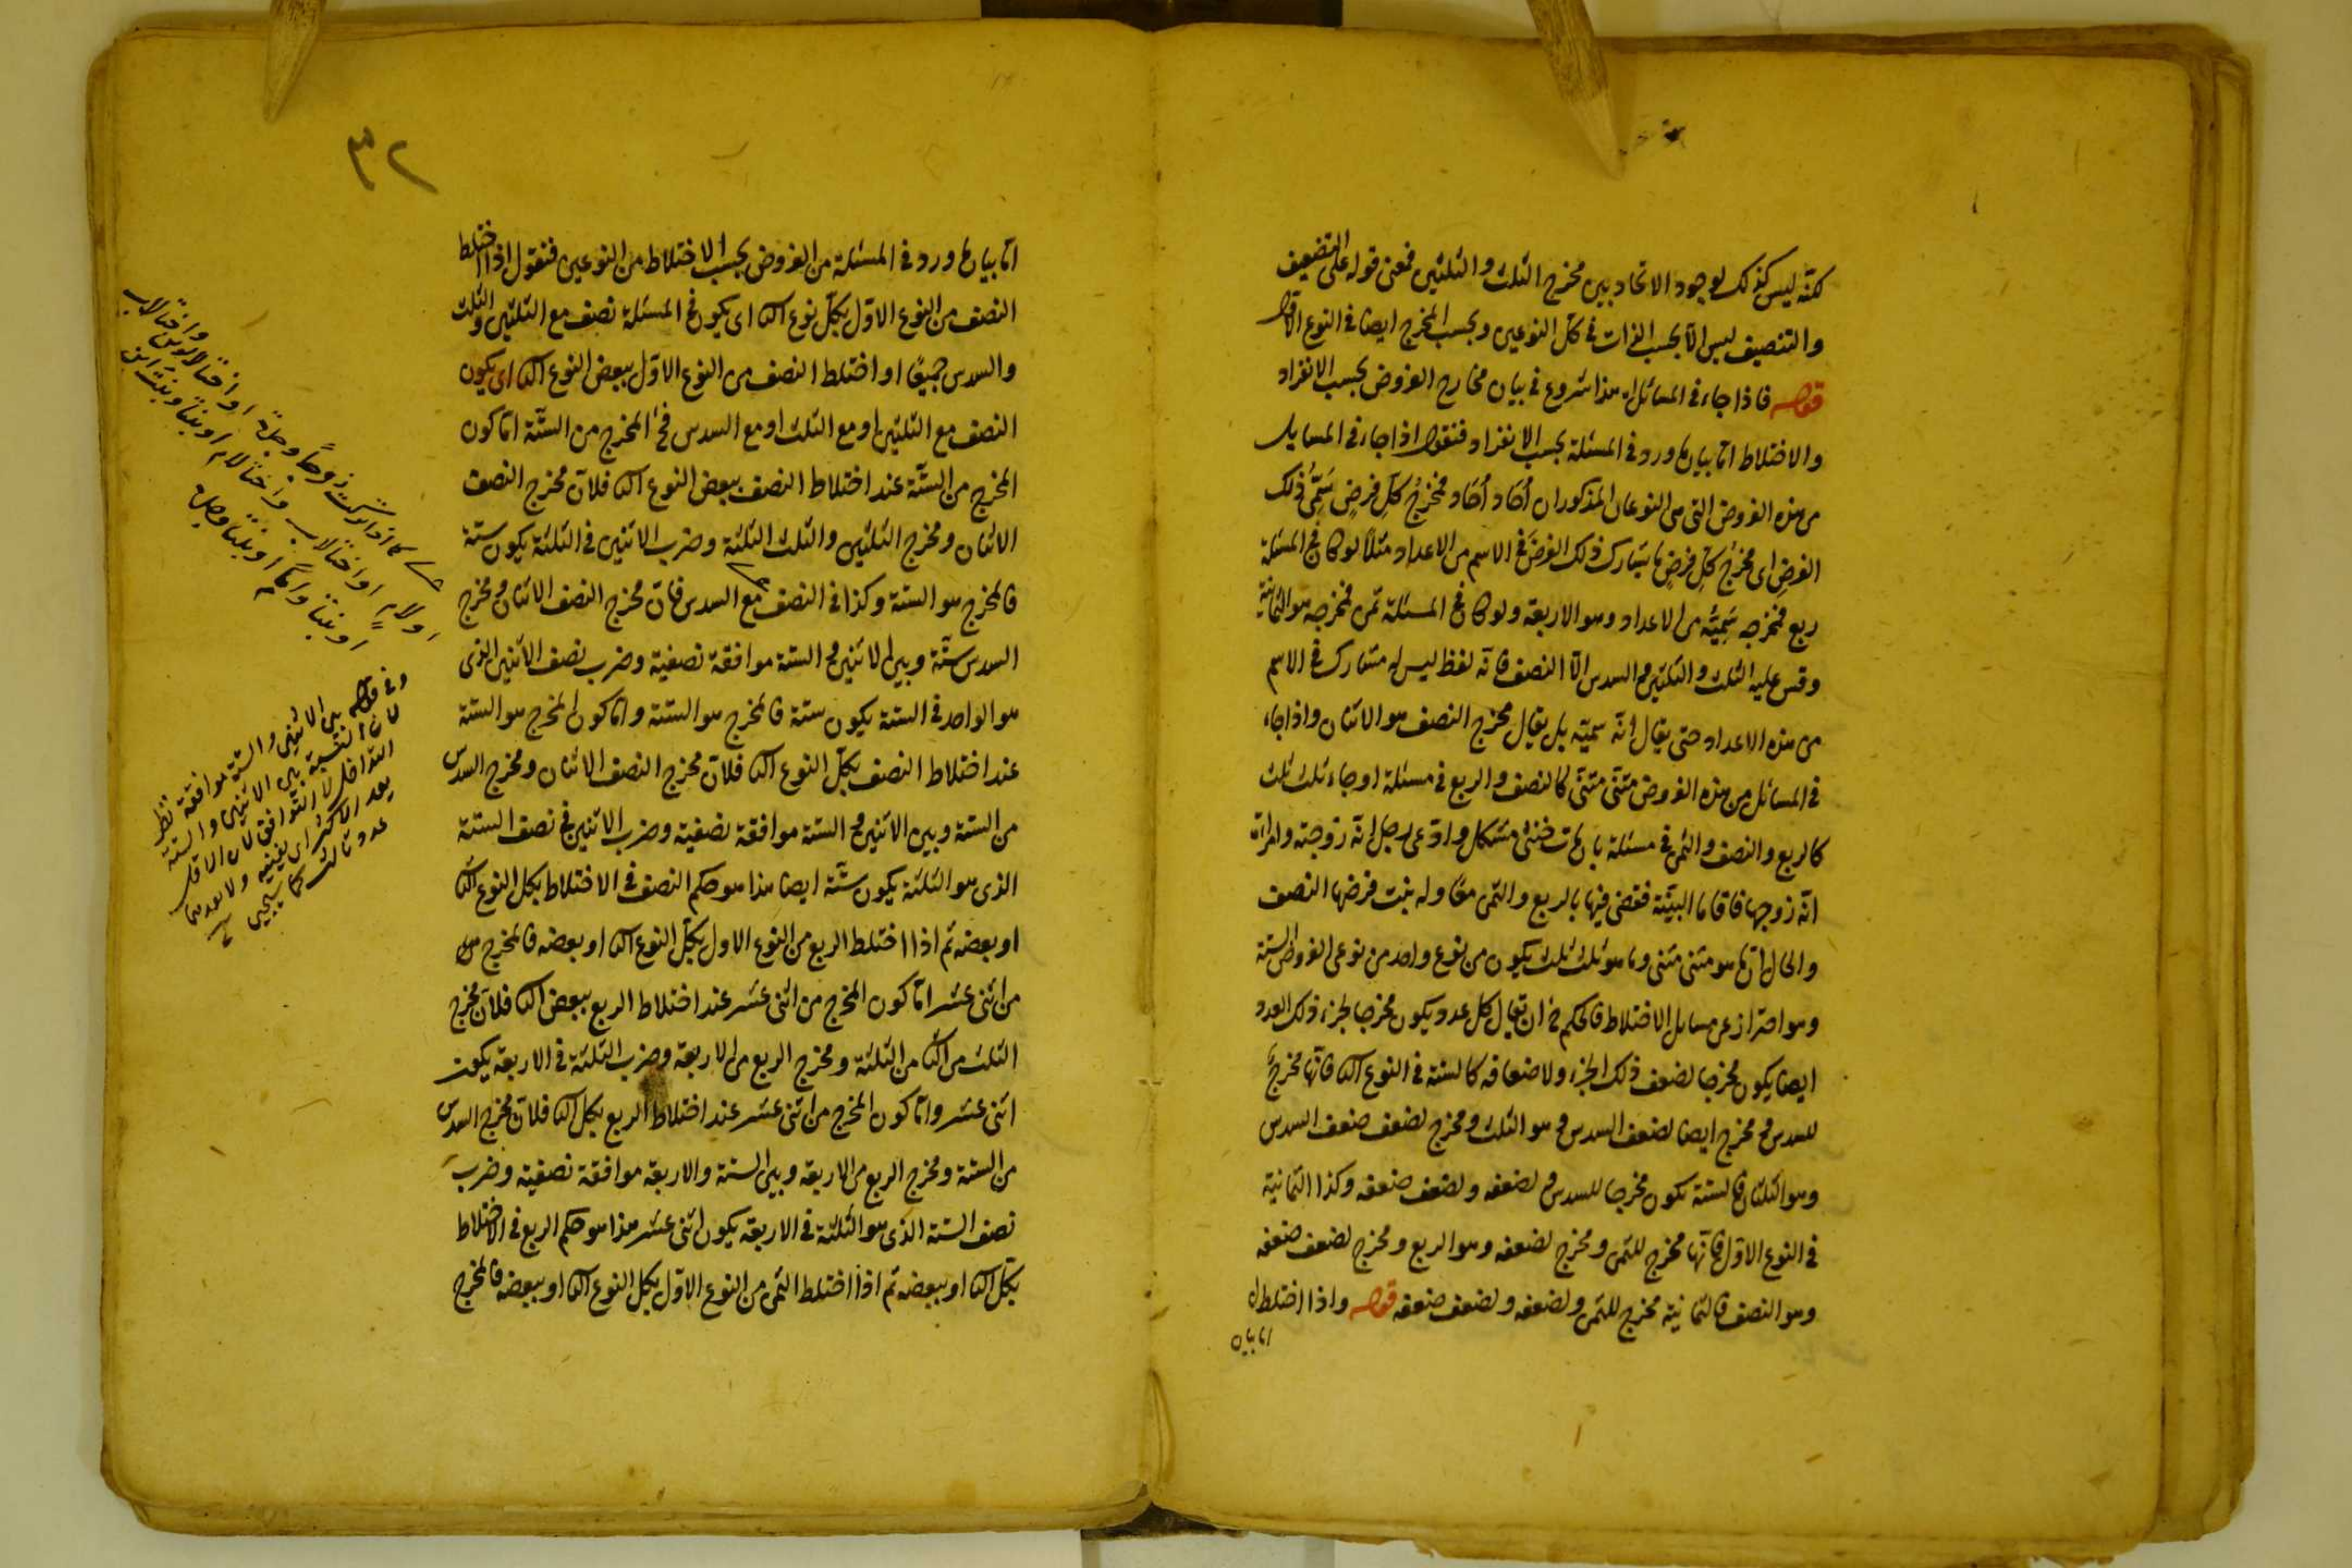 لكنّه ليس كذلك لوجود الاتحاد بين مخرج الثلث والثلثين فمعنى قوله على التضعيف
والتنصيف ليس الّا بحسب الذات فى كلّ النوعين وبحسب المخرج ايضا فى النوع الاول
قوله فاذا جاء فى المسائل اه هذا شروع فى بيان مخارج الفروض بحسب الانفراد
والاختلاط امّا بيان ما ورد فى المسئلة بحسب الانفراد فنقول اذا جاء فى المسايل
من هذه الفروض التى من النوعان المذكوران اُحَاد اُحَاد فمخرجُ كلِّ فرضٍ سَمِيُّ ذلك
الفرض اى مخرجُ كلِّ فرضٍ ما يشارك ذلك الفرضَ فى الاسم من الاعداد مثلًا لو كان فى المسئلة
ربع فمخرجه سَمِيُّه من الاعداد وهو الاربعة ولو كان فى المسئلة ثمن فمخرجه هو الثمانية
وقس عليه الثلث والثلثين والسدس الّا النصف فانّه لفظ ليس له مشارك فى الاسم
من هذه الاعداد حتى يقال انّه سميّه بل يقال مخرج النصف هو الاثنان واذا جاء
فى المسائل من هذه الفروض مثنًى مثنًى كالنصف والربع فى مسئلة او جاء ثلث ثلث
كالربع والنصف والثمن فى مسئلة بان مات خنثى مشكل وادّعى رجل انّه زوجته وامراة
انّه زوجها فاقاما البيّنة فقضى فيها بالربع والثمن معًا وله بنت فرضها النصف
والحال انّ ما هو مثنى مثنى وما هو ثلث ثلث يكون من نوع واحد من نوعى الفروض الستة
وهو احتراز عن مسايل الاختلاط فالحكم ح ان يقال كل عدد يكون مخرجا لجزء ذلك العدد
ايضا يكون مخرجا لضعف ذلك الجزء ولاضعافه كالستة فى النوع الثا فانّها مخرجٌ
للسدس ومخرج ايضا لضعف السدس وهو الثلث ومخرج لضعف ضعف السدس
وهو الثلثان فالستة تكون مخرجا للسدس ولضعفه ولضعف ضعفه وكذا الثمانية
فى النوع الاوّل فانّها مخرج للثمن ومخرج لضعفه وهو الربع ومخرج لضعف ضعفه
وهو النصف فالثمانية مخرج للثمن ولضعفه ولضعف ضعفه قوله واذا اختلط اه
اما بيان
٣٢
امّا بيان ما ورد فى المسئلة من الفروض بحسب الاختلاط من النوعين فنقول اذا اختلط
النصف من النوع الاوّل بكلّ نوع الثا اى يكون فى المسئلة نصف مع الثلثين والثلث
والسدس جميعًا او اختلط النصف من النوع الاوّل ببعض النوع الثا اى يكون
النصف مع الثلثين او مع الثلث او مع السدس فح المخرج من الستّة امّا كون
المخرج من الستّة عند اختلاط النصف ببعض النوع الثا فلانّ مخرج النصف
الاثنان ومخرج الثلثين والثلث الثلثة وضرب الاثنين فى الثلثة يكون ستّة
فالمخرج هو الستة وكذا فى النصف مع السدس فانّ مخرج النصف الاثنان ومخرج
السدس ستّة وبين الاثنين والستة موافقة نصفية وضرب نصف الاثنين الذى
هو الواحد فى الستة يكون ستة فالمخرج هو الستة وامّا كون المخرج هو الستة
عند اختلاط النصف بكلّ النوع الثا فلانّ مخرج النصف الاثنان ومخرج السدس
من الستة وبين الاثنين والستة موافقة نصفية وضرب الاثنين فى نصف الستة
الذى هو الثلثة يكون ستّة ايضا هذا هو حكم النصف فى الاختلاط بكل النوع الثا
او بعضه ثم اذا اختلط الربع من النوع الاول بكلّ النوع الثا او بعضه فالمخرج
من اثنى عشر امّا كون المخرج من اثنى عشر عند اختلاط الربع ببعض الثا فلانّ مخرج
الثلث من الثا من الثلثة ومخرج الربع من الاربعة وضرب الثلثة فى الاربعة يكون
اثنى عشر وامّا كون المخرج من اثنى عشر عند اختلاط الربع بكل الثا فلانّ مخرج السدس
من الستة ومخرج الربع من الاربعة وبين الستة والاربعة موافقة نصفية وضرب
نصف الستة الذى هو الثلثة فى الاربعة يكون اثنى عشر هذا هو حكم الربع فى الاختلاط
بكلّ الثا او ببعضه ثم اذا اختلط الثمن من النوع الاوّل بكل النوع الثا او ببعضه فالمخرج
كما اذا تركت زوجاً وجدّة او اختًا لابوين
او لام او اختا لاب واختا لام او بنتًا وبنت ابن
وفى قوله بين الاثنين والستة موافقة نظر
لان النسبة بين الاثنين والستة
التداخل لا التوافق لان الاقل
يعد الاكثر اى يفنيه ولا يعدهما
عدد ثالث كما سيجيئ